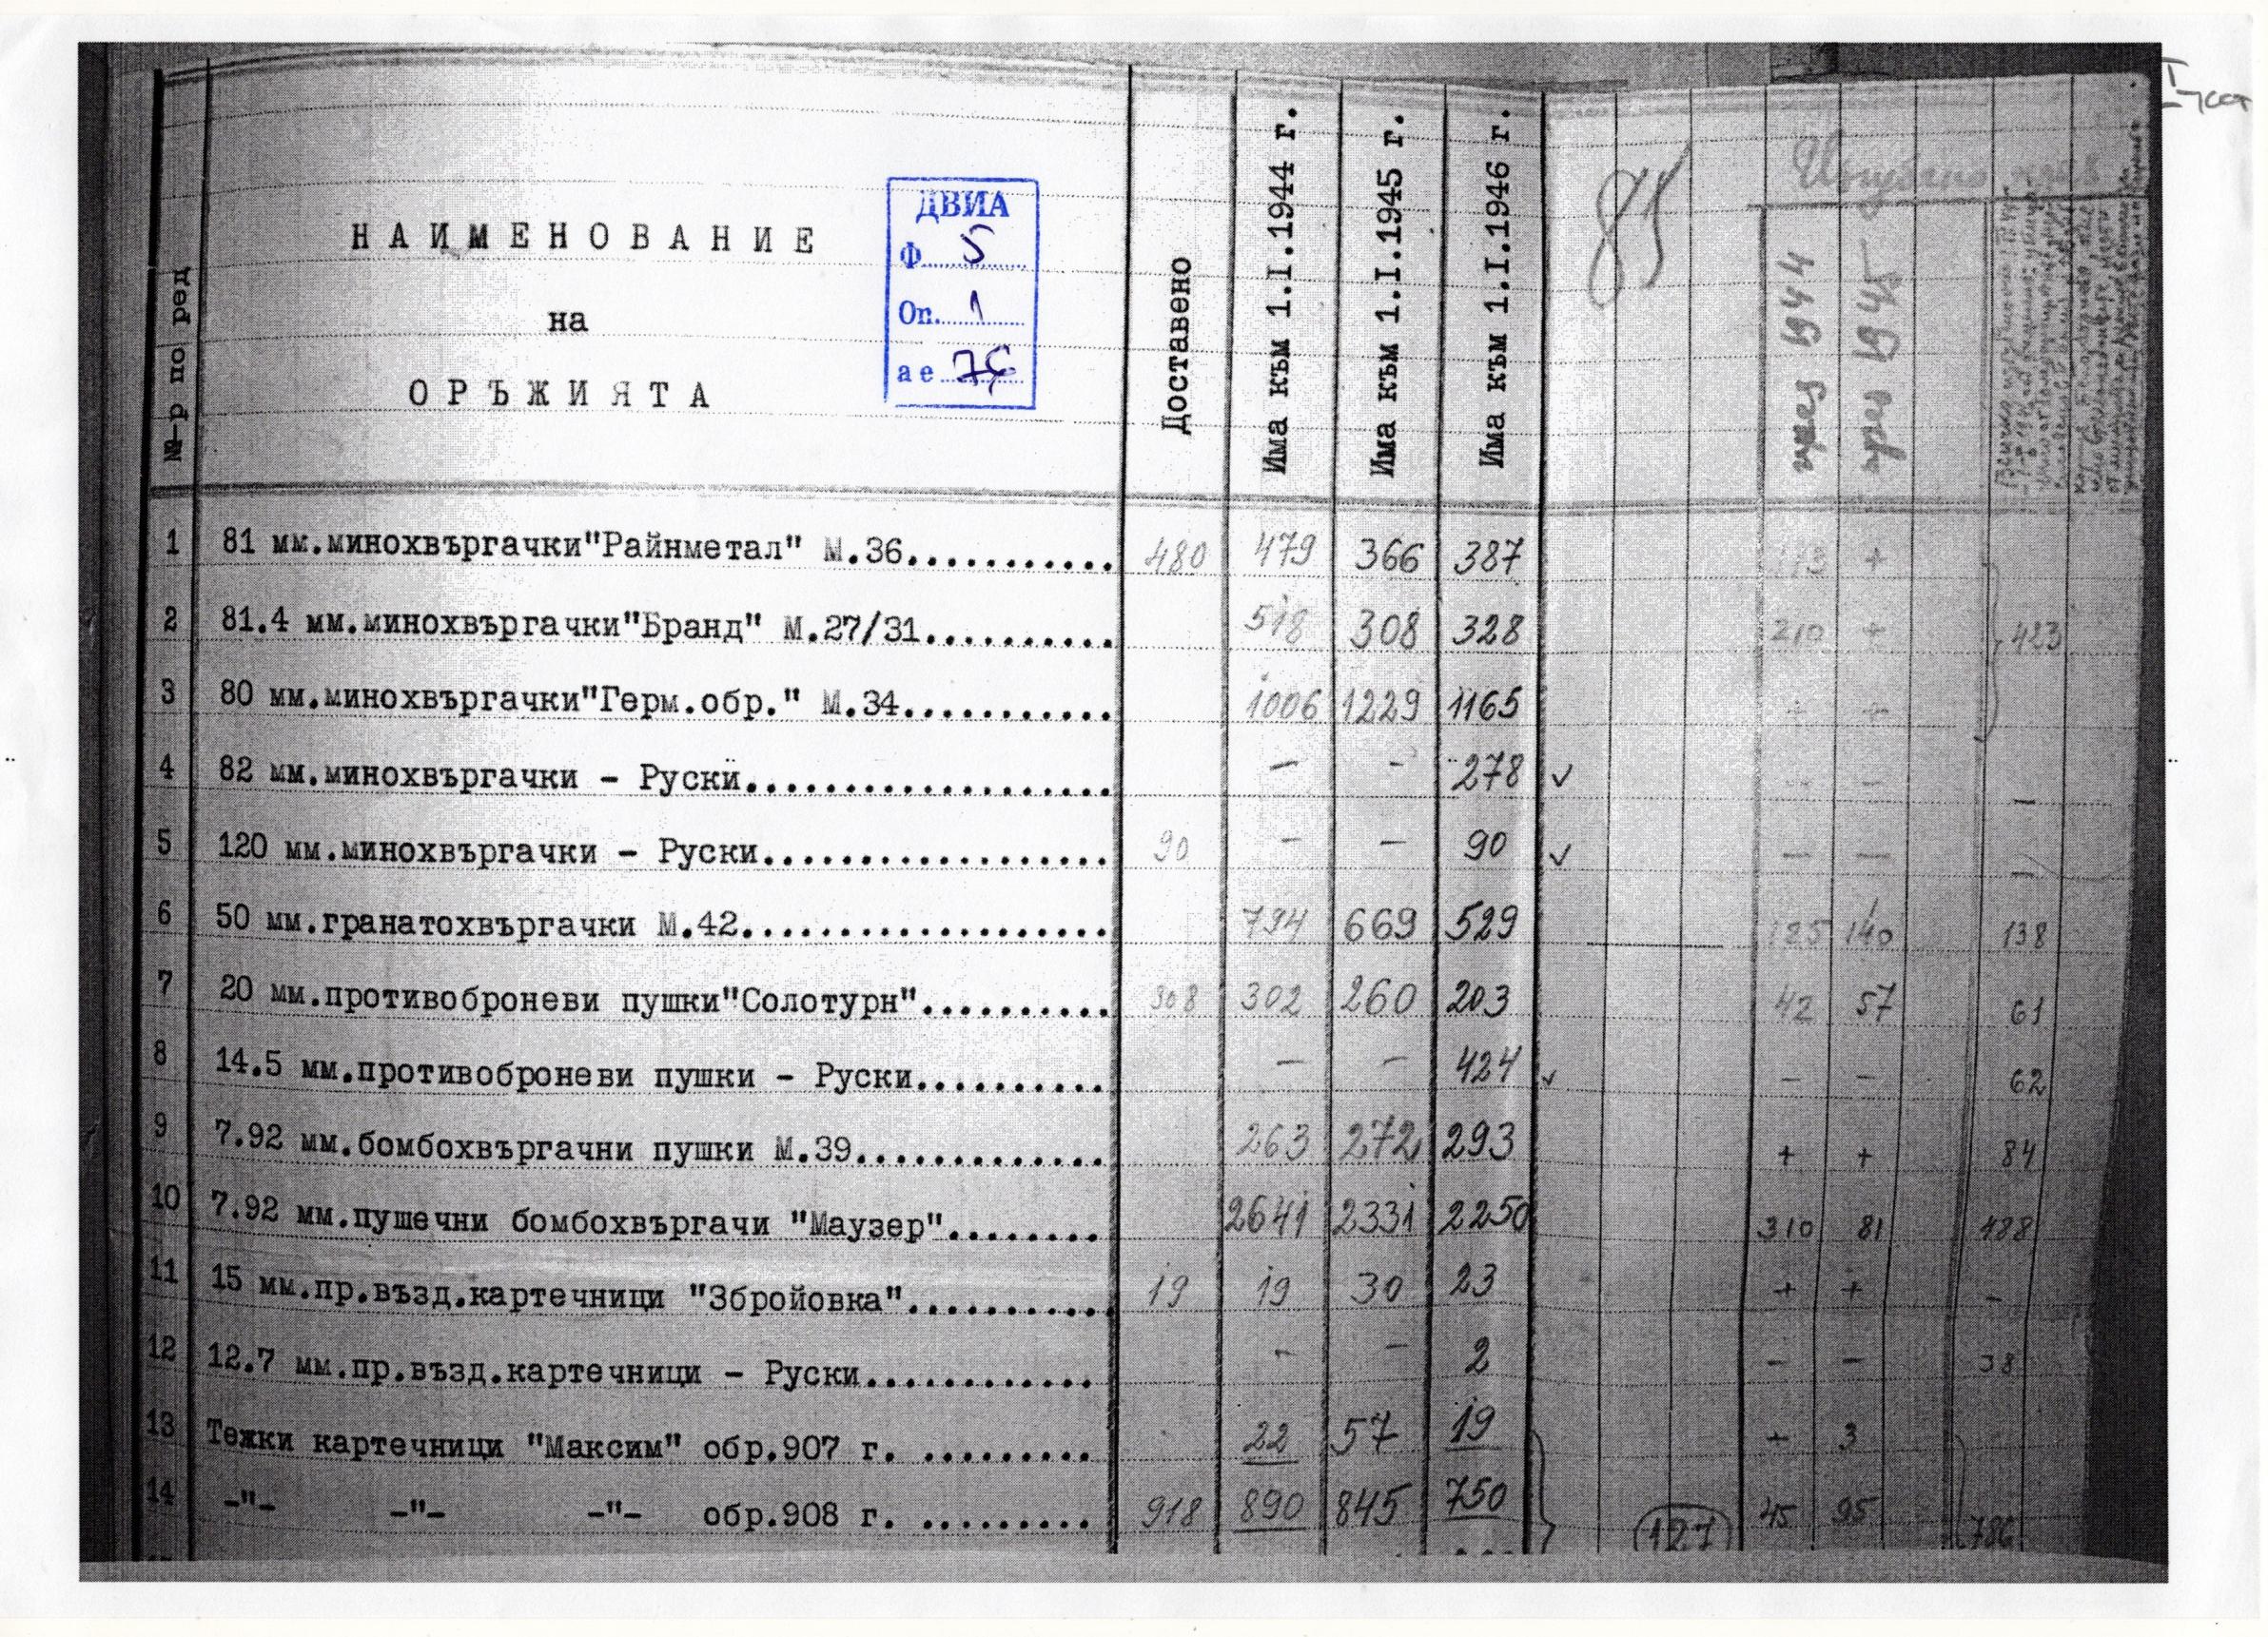 НАИМЕНОВАНИЕ
на
ОРЪЖИЯТА
ДВИА
Ф. 5
Оп. 1
а е
№-р по ред
Доставено
Има към 1.I.1944 г.
Има към 1.I.1945 г.
Има към 1.I.1946 г.
през 1944
през 1945
1 81 мм.минохвъргачки"Райнметал" М.36........... 480 479 366 387 113 +
2 81.4 мм.минохвъргачки"Бранд" М.27/31.......... 518 308 328 210 + 423
3 80 мм.минохвъргачки"Герм.обр." М.34........... 1006 1229 1165 + +
4 82 мм.минохвъргачки - Руски................... - - 278 ✓ - - -
5 120 мм.минохвъргачки - Руски.................. 90 - - 90 ✓ - - -
6 50 мм.гранатохвъргачки М.42................... 794 669 529 125 140 138
7 20 мм.противоброневи пушки"Солотурн".......... 308 302 260 203 42 57 61
8 14.5 мм.противоброневи пушки - Руски.......... - - 424 ✓ - - 62
9 7.92 мм.бомбохвъргачни пушки М.39............. 263 272 293 + + 84
10 7.92 мм.пушечни бомбохвъргачи "Маузер"........ 2641 2331 2250 310 81 488
11 15 мм.пр.възд.картечници "Збройовка"........... 19 19 30 23 + + -
12 12.7 мм.пр.възд.картечници - Руски............ - - 2 - - 38
13 Тежки картечници "Максим" обр.907 г. ......... 22 57 19 + 3
14 -"- -"- -"- обр.908 г. ......... 918 890 845 750 127 45 95 786